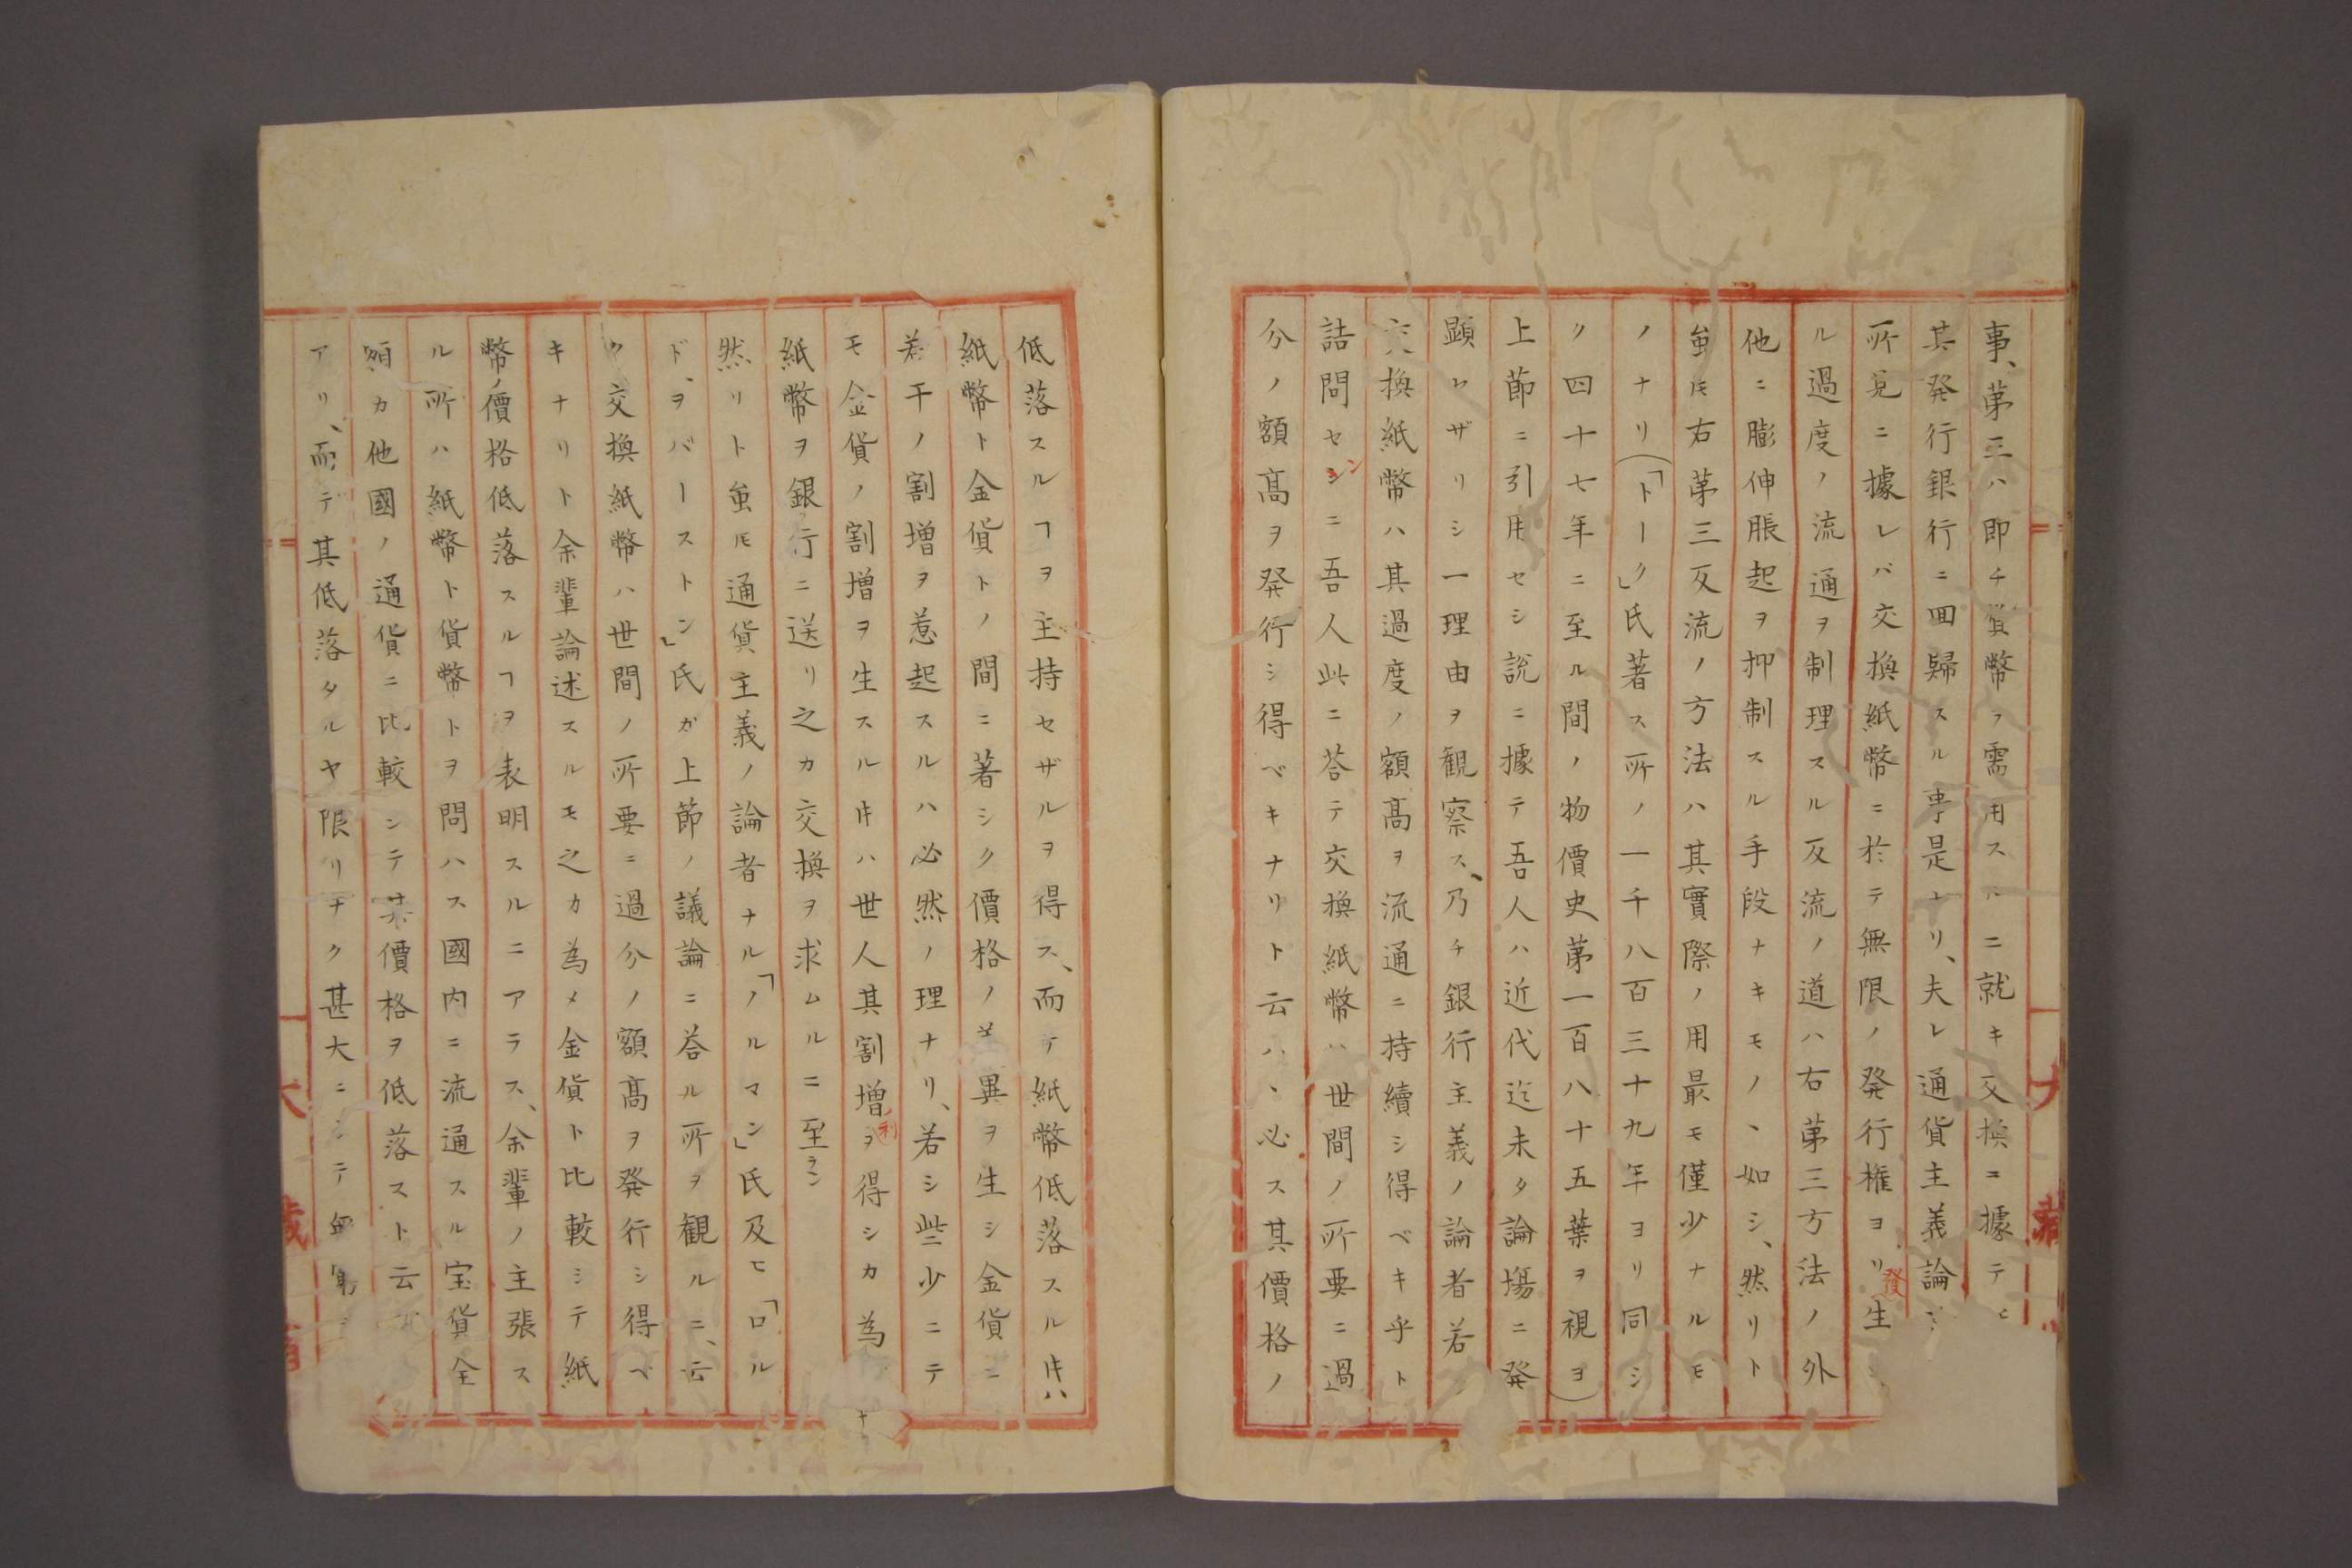 事、第三ハ即チ貨幣ヲ需用スルニ就キ交換ニ據テ
其発行銀行ニ回歸スル事是ナリ、夫レ通貨主義論
所見ニ據レバ交換紙幣ニ於テ無限ノ発行権ヨリ發生
ル過度ノ流通ヲ制理スル反流ノ道ハ右第三方法ノ外
他ニ膨伸脹起ヲ抑制スル手段ナキモノヽ如シ、然リト
虽𪜈右第三反流ノ方法ハ其實際ノ用最モ僅少ナルモ
ノナリ(「トーク」氏著ス所ノ一千八百三十九年ヨリ同シ
ク四十七年ニ至ル間ノ物價史第一百八十五葉ヲ視ヨ)
上節ニ引用セシ説ニ據テ吾人ハ近代迄未タ論場ニ発
顕セザリシ一理由ヲ観察ス、乃チ銀行主義ノ論者若
交換紙幣ハ其過度ノ額髙ヲ流通ニ持續シ得ベキ乎ト
詰問センニ吾人此ニ荅テ交換紙幣ハ世間ノ所要ニ過
分ノ額髙ヲ発行シ得ベキナリト云ハヽ必ス其價格ノ
低落スルヿヲ主持セザルヲ得ス、而テ紙幣低落スル𪜈ハ
紙幣ト金貨トノ間ニ著シク價格ノ差異ヲ生シ金貨ニ
若干ノ割増ヲ惹起スルハ必然ノ理ナリ、若シ些少ニテ
モ金貨ノ割増ヲ生スル𪜈ハ世人其割増利ヲ得シカ為
紙幣ヲ銀行ニ送リ之カ交換ヲ求ムルニ至ラン
然リト虽𪜈通貨主義ノ論者ナル「ノルマン」氏及ヒ「ロル
ド、ヲバーストン」氏ガ上節ノ議論ニ荅ル所ヲ観ルニ、云
ク交換紙幣ハ世間ノ所要ニ過分ノ額髙ヲ発行シ得ベ
キナリト余輩論述スルモ之カ為メ金貨ト比較シテ紙
幣ノ價格低落スルヿヲ表明スルニアラス、余輩ノ主張ス
ル所ハ紙幣ト貨幣トヲ問ハス國内ニ流通スル宝貨全
額カ他國ノ通貨ニ比較シテ其價格ヲ低落スト云
アリ、而テ其低落タルヤ限リナク甚大ニシテ